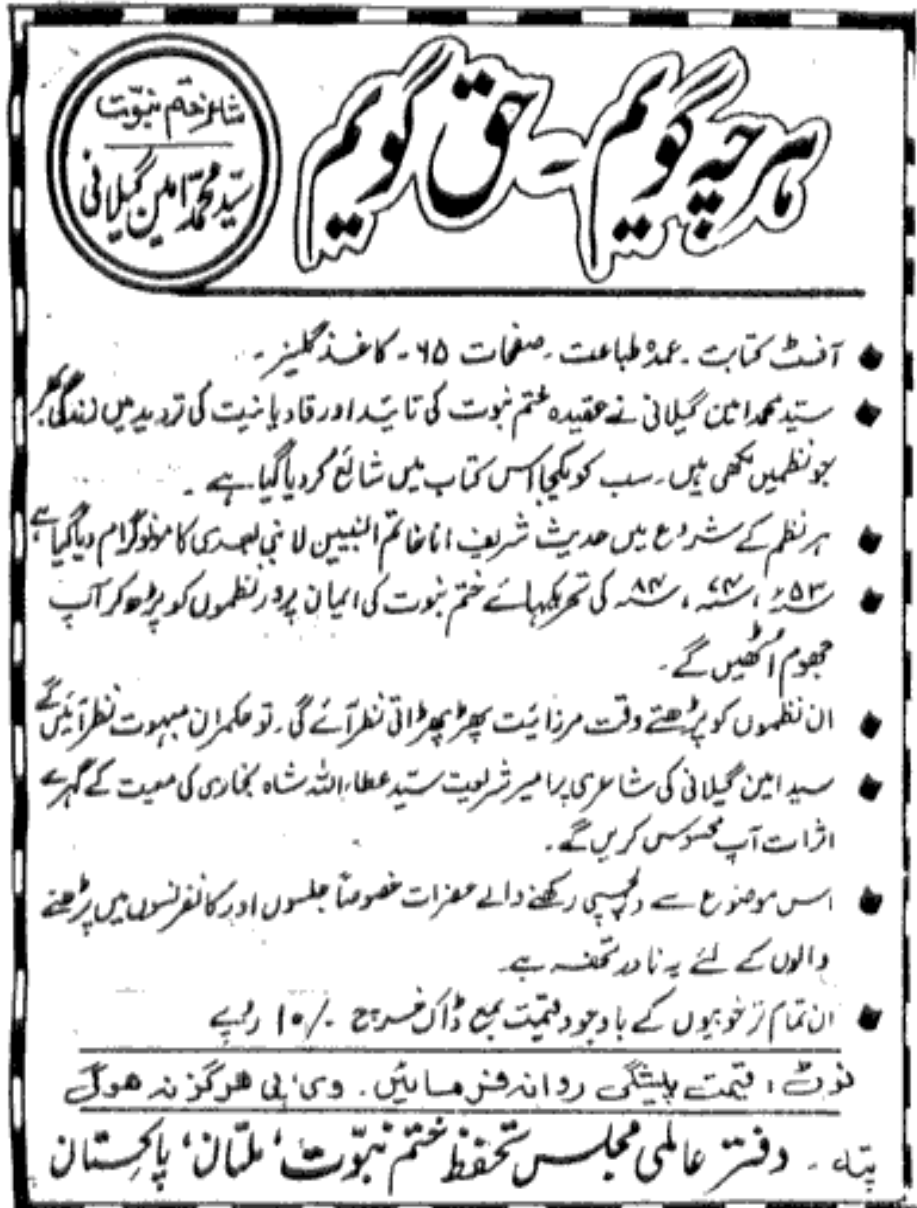 ہرچہ گویم - حق گویم
شاعرِ ختم نبوّت
سیّد محمّد امین گیلانی
آفسٹ کتابت - عمدہ طباعت - صفحات ۶۵ - کاغذ گلیز -
سیّد محمد امین گیلانی نے عقیدہ ختم نبوت کی تائید اور قادیانیت کی تردید میں زندگی بھر
جو نظمیں لکھی ہیں - سب کو یکجا اس کتاب میں شائع کر دیا گیا ہے -
ہر نظم کے شروع میں حدیث شریف انا خاتم النبیین لا نبی بعدی کا مونوگرام دیا گیا ہے
۵۳ء، ۷۴ء، ۸۴ء کی تحریکہائے ختم نبوت کی ایمان پرور نظموں کو پڑھ کر آپ
جھوم اُٹھیں گے -
ان نظموں کو پڑھتے وقت مرزائیت پھڑپھڑاتی نظر آئے گی - تو حکمران مبہوت نظر آئیں گے
سید امین گیلانی کی شاعری پر امیر شریعت سیّد عطاء اللہ شاہ بخاری کی معیت کے گہرے
اثرات آپ محسوس کریں گے -
اس موضوع سے دلچسپی رکھنے والے حضرات خصوصاً جلسوں اور کانفرنسوں میں پڑھنے
والوں کے لئے یہ نادر تحفہ ہے -
ان تمام تر خوبیوں کے باوجود قیمت بمع ڈاک خرچ ۱۰/- روپے
نوٹ : قیمت پیشگی روانہ فرمائیں - وی پی ہرگز نہ ہوگی
پتہ - دفتر عالمی مجلس تحفّظ ختم نبوّت، ملتان، پاکستان